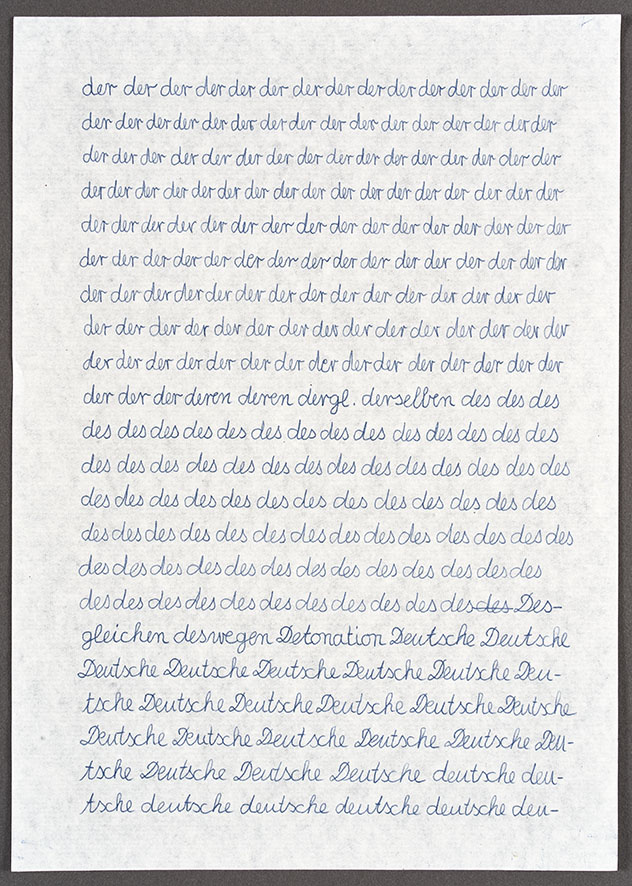 der der der der der der der der der der der der der der der
der der der der der der der der der der der der der der der der
der der der der der der der der der der der der der der der der
der der der der der der der der der der der der der der der der der
der der der der der der der der der der der der der der der der
der der der der der der der der der der der der der der der der
der der der der der der der der der der der der der der der
der der der der der der der der der der der der der der der
der der der der der der der der der der der der der der der
der der der deren deren dergl. derselben des des des
des des des des des des des des des des des des des des
des des des des des des des des des des des des des des
des des des des des des des des des des des des des
des des des des des des des des des des des des des des
des des des des des des des des des des des des
des des des des des des des des des des des Des-
gleichen deswegen Detonation Deutsche Deutsche
Deutsche Deutsche Deutsche Deutsche Deutsche Deu-
tsche Deutsche Deutsche Deutsche Deutsche Deutsche
Deutsche Deutsche Deutsche Deutsche Deutsche Deu-
tsche Deutsche Deutsche Deutsche deutsche deu-
tsche deutsche deutsche deutsche deutsche deu-